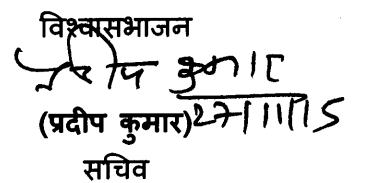 विश्वासभाजन
प्रदीप कुमार
(प्रदीप कुमार) 27/11/15
सचिव